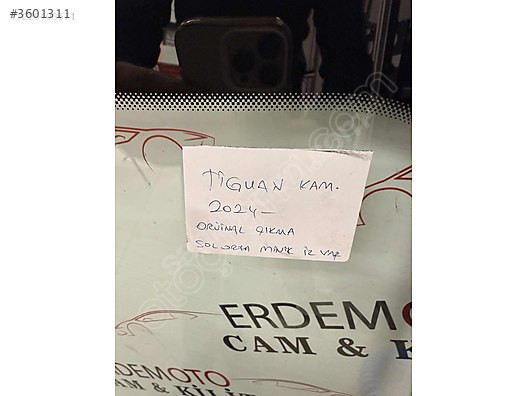 #3601311
TİGUAN KAM.
2024-
ORJİNAL ÇIKMA
SOL ORTA MİNİK İZ VAR
ERDEMOTO
CAM & K
RDEMOTO
AM & KİLİT